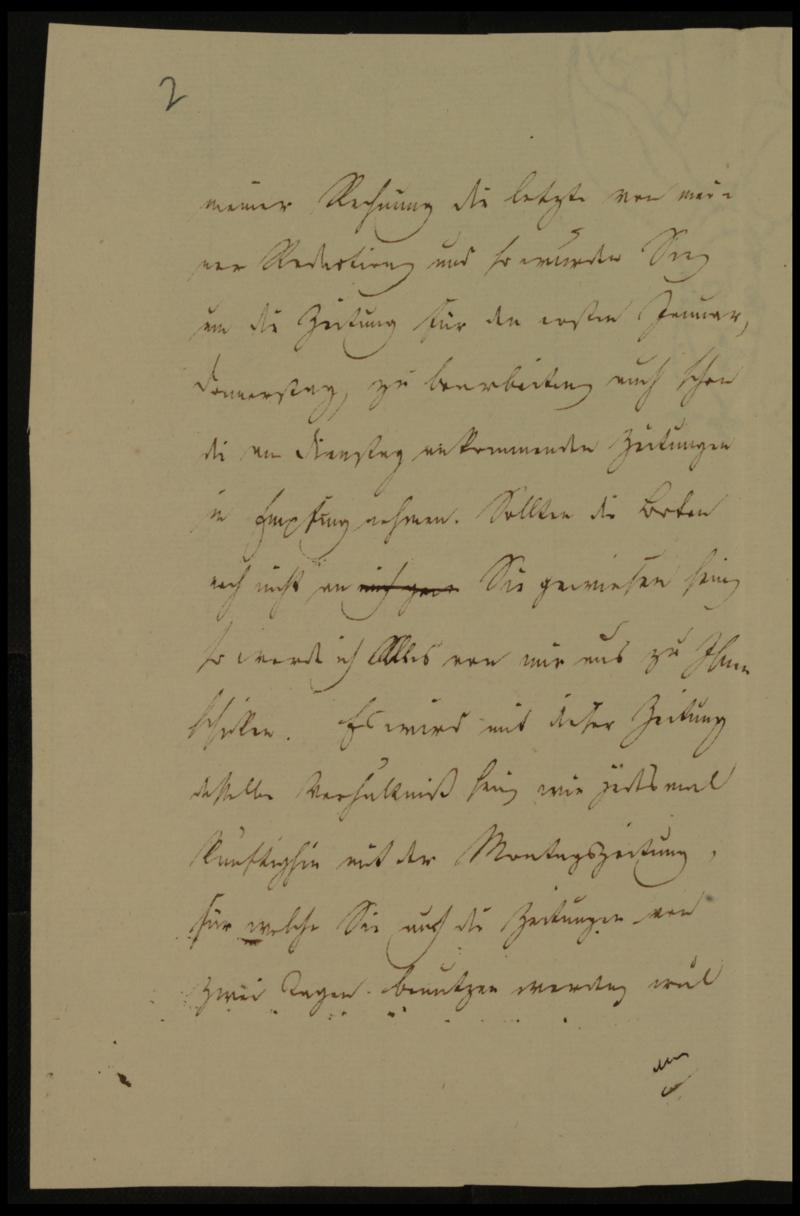 2
meiner Rechnung die letzte von mei-
ner Redaction und so würden Sie
um die Zeitung für den ersten Januar,
Donnerstag, zu bearbeiten auch schon
die am Dienstag ankommenden Zeitungen
in Empfang nehmen. Sollten die Boten
noch nicht an Sie gewiesen sein
so werde ich Alles von mir aus zu Ihnen
schicken. Es wird mit dieser Zeitung
dasselbe Verhältniß sein wie jedesmal
künftighin mit der Montagszeitung,
für welche Sie auch die Zeitungen von
zwei Tagen benutzen werden weil